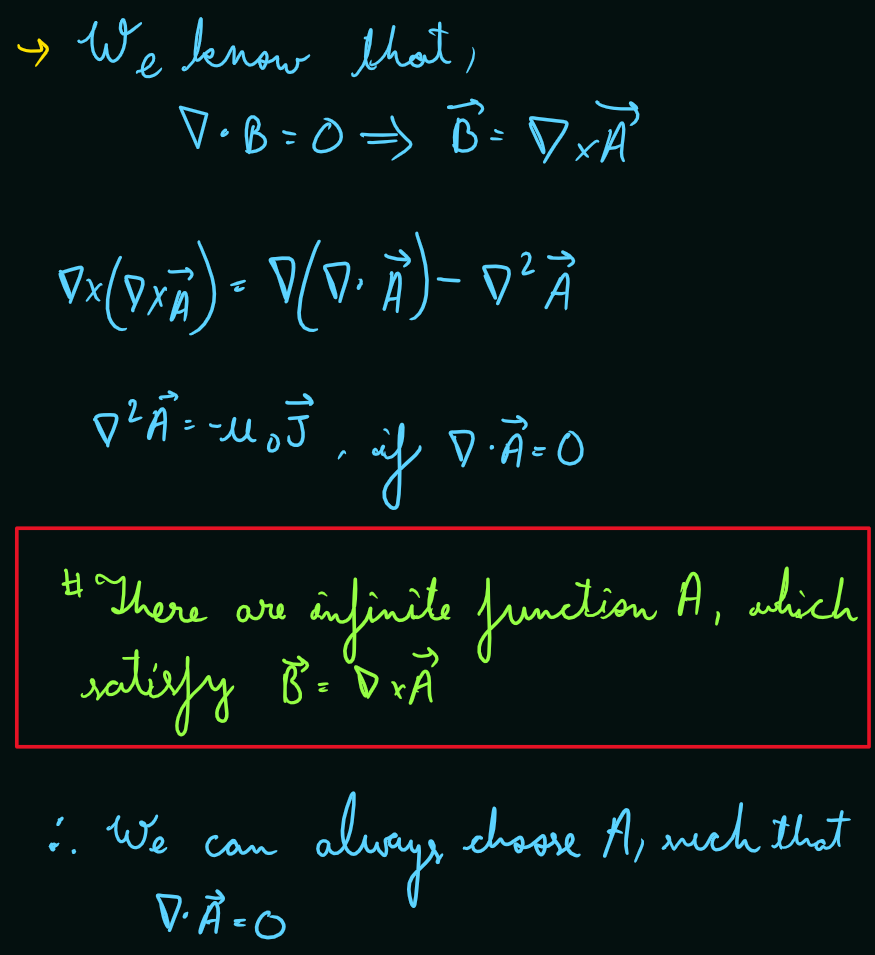 → We know that,
∇·B = 0 ⟹ B⃗ = ∇×A⃗
∇×(∇×A⃗) = ∇(∇·A⃗) − ∇²A⃗
∇²A⃗ = −μ₀J⃗, if ∇·A⃗ = 0
# There are infinite function A, which
satisfy B⃗ = ∇×A⃗
∴ We can always choose A, such that
∇·A⃗ = 0